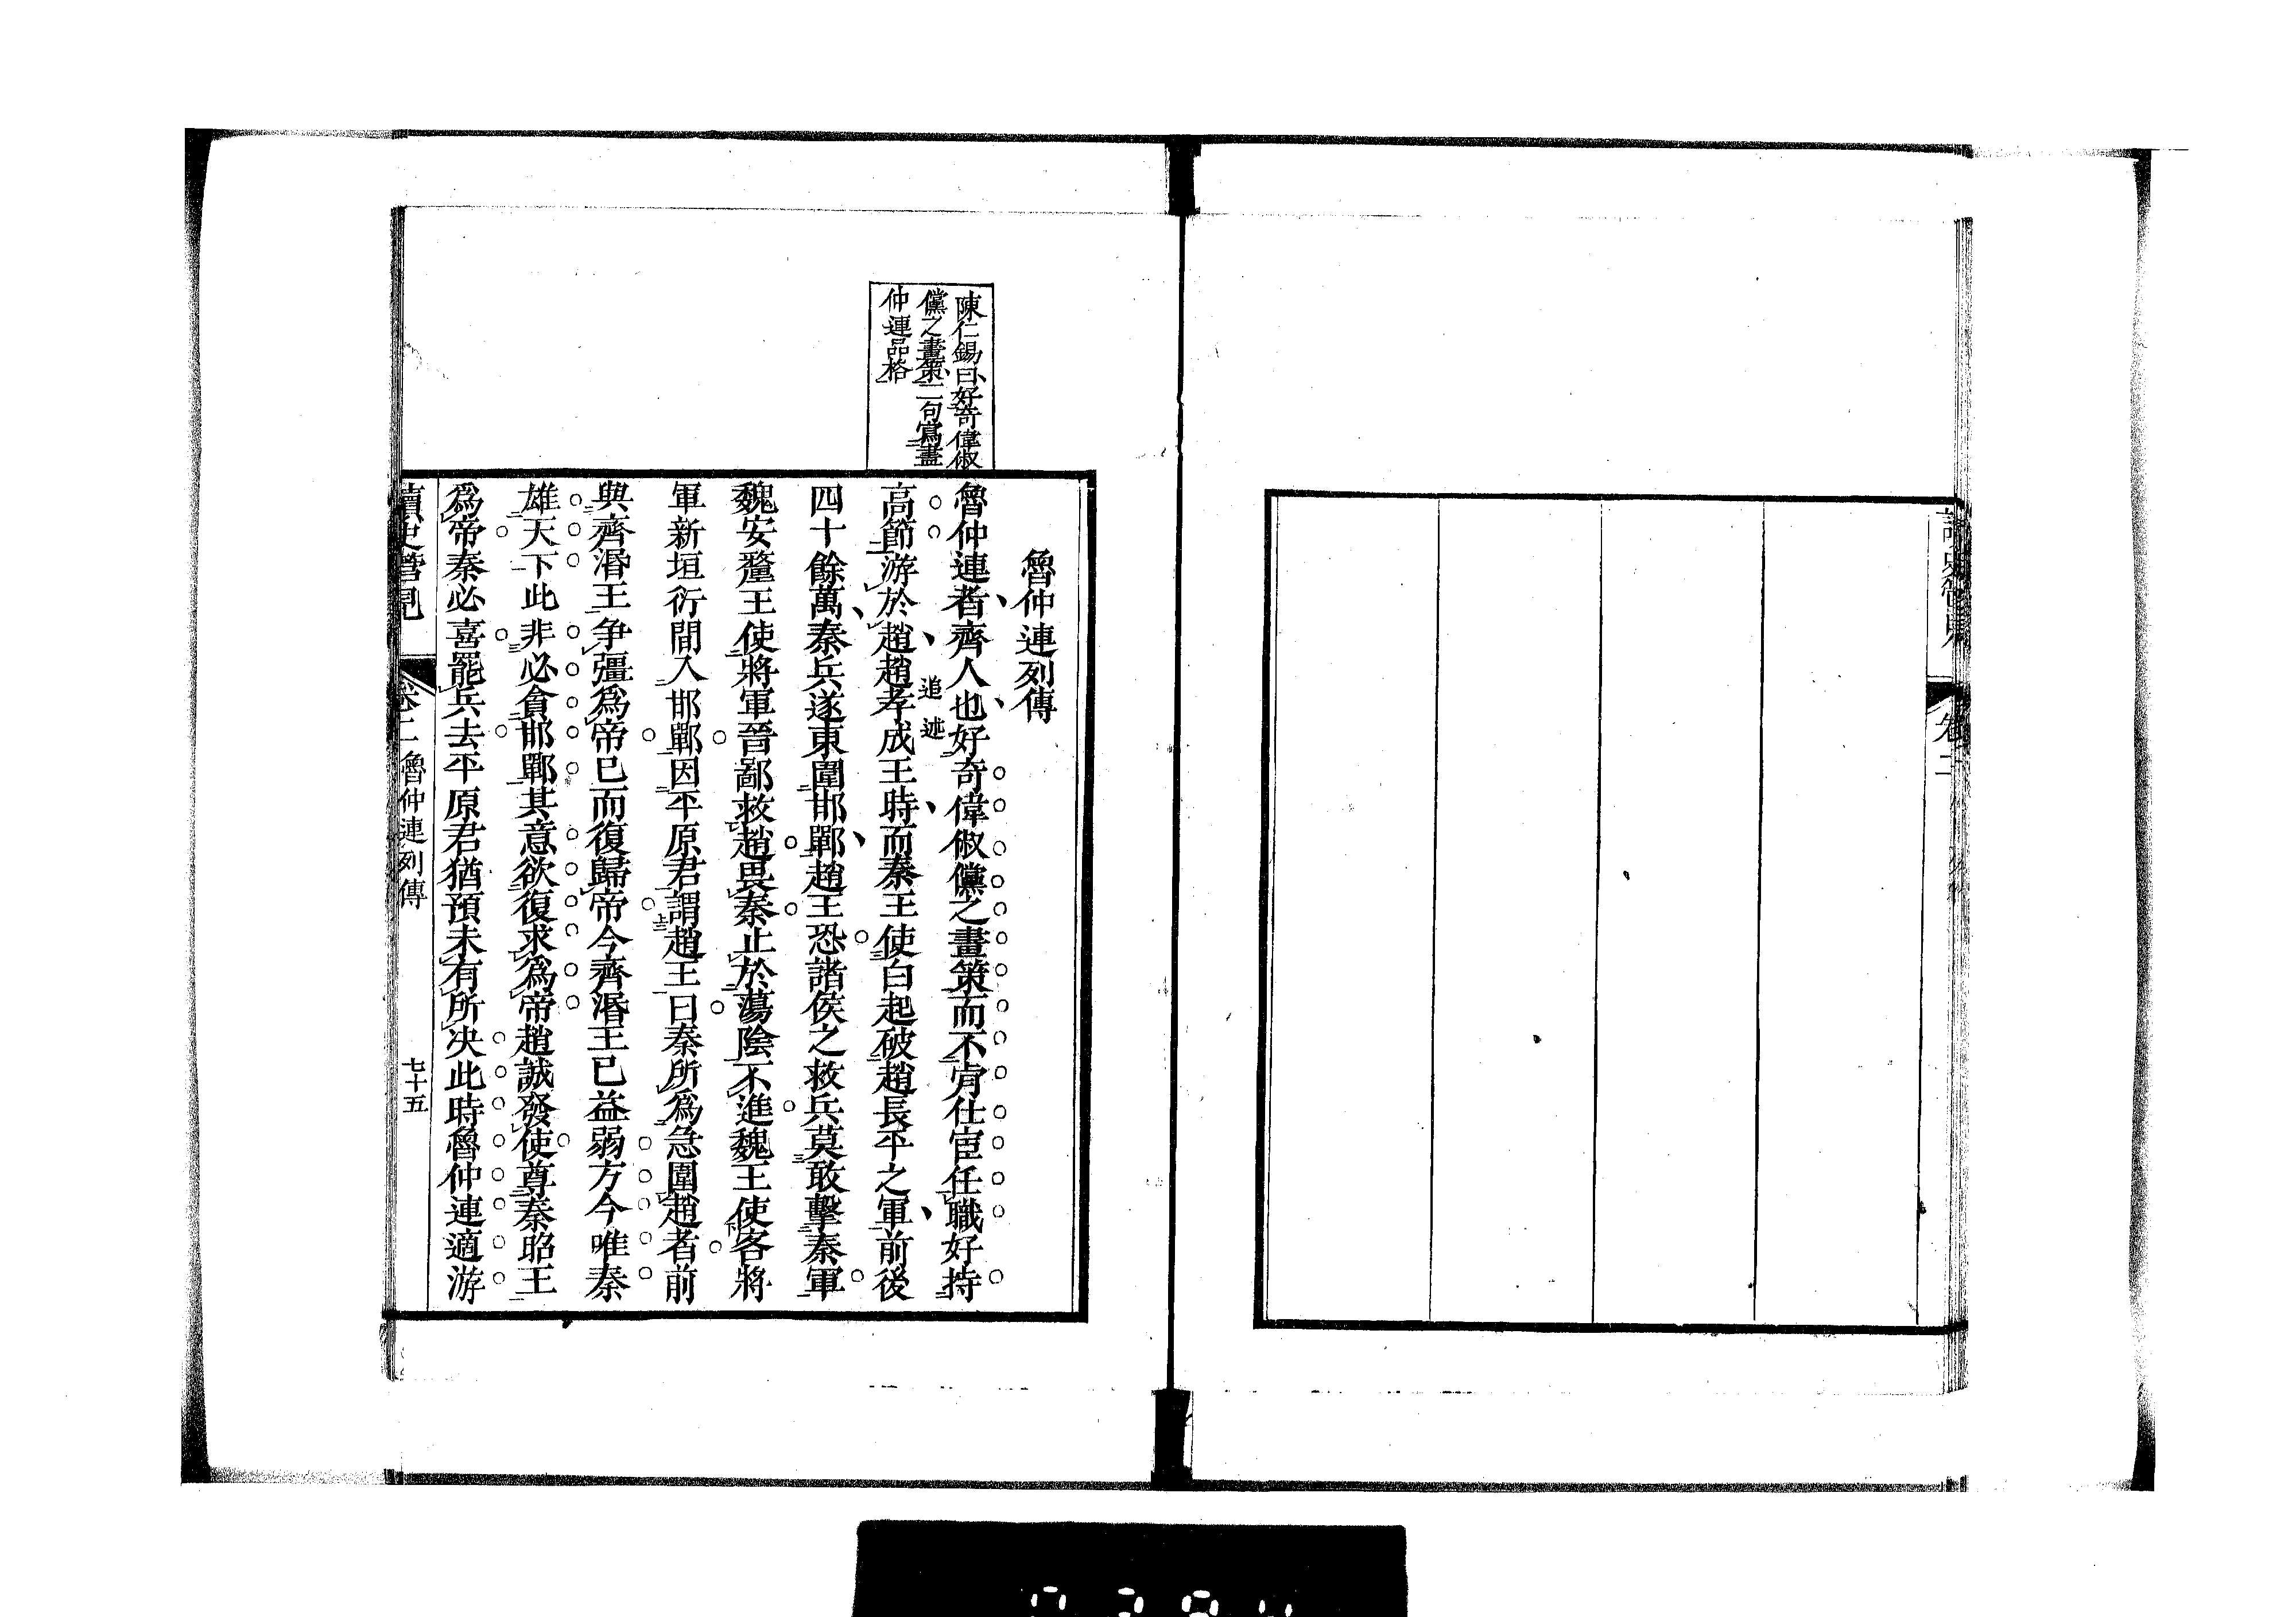 讀史管見
卷二
陳仁錫曰好奇偉俶
儻之畫策二句寫盡
仲連品格
魯仲連列傳
魯仲連者齊人也好奇偉俶儻之畫策而不肯仕宦任職好持
追述
高節游於趙趙孝成王時而秦王使白起破趙長平之軍前後
四十餘萬秦兵遂東圍邯鄲趙王恐諸侯之救兵莫敢擊秦軍
魏安釐王使將軍晉鄙救趙畏秦止於蕩陰不進魏王使客將
軍新垣衍間入邯鄲因平原君謂趙王曰秦所爲急圍趙者前
與齊湣王爭彊爲帝已而復歸帝今齊湣王已益弱方今唯秦
雄天下此非必貪邯鄲其意欲復求爲帝趙誠發使尊秦昭王
爲帝秦必喜罷兵去平原君猶預未有所决此時魯仲連適游
讀史管見
卷二
魯仲連列傳
七十五